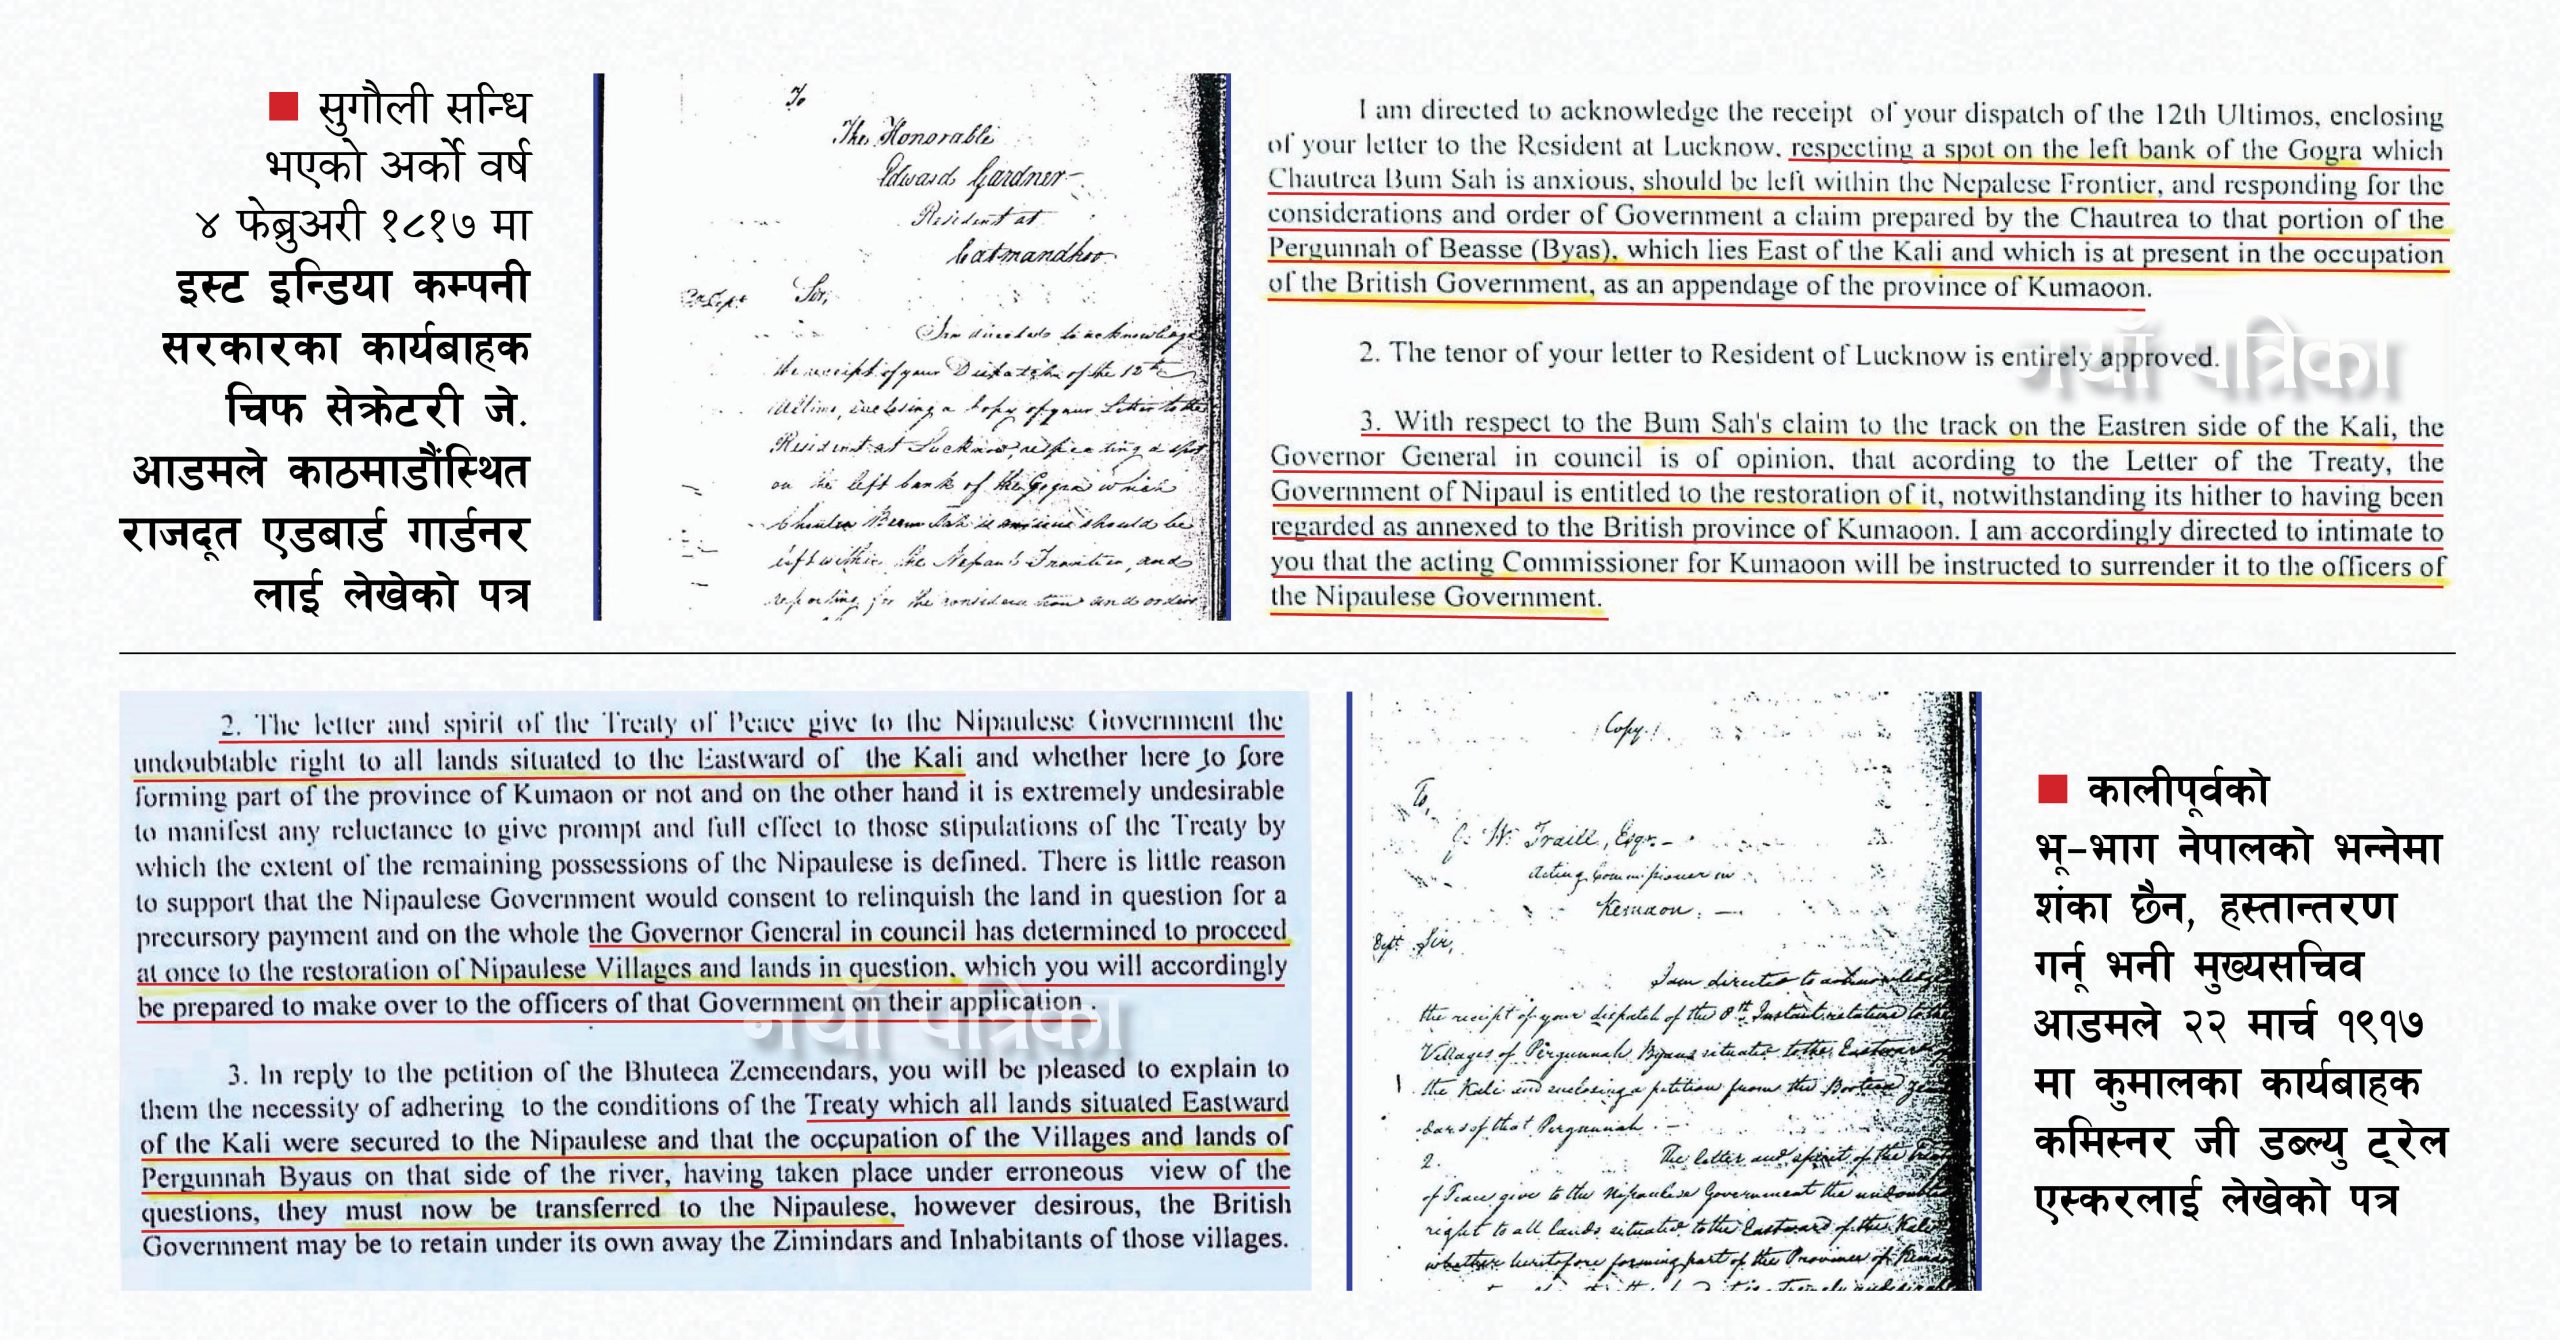 ■ सुगौली सन्धि
भएको अर्को वर्ष
४ फेब्रुअरी १८१७ मा
इस्ट इन्डिया कम्पनी
सरकारका कार्यबाहक
चिफ सेक्रेटरी जे.
आडमले काठमाडौंस्थित
राजदूत एडबार्ड गार्डनर
लाई लेखेको पत्र
To
The Honorable
Edward Gardner
Resident at
Catmandhoo
Sir,
I am directed to acknowledge
the receipt of your Dispatch of the 12th
Ultimo, enclosing a copy of your Letter to the
Resident at Lucknow, respecting a spot
on the left bank of the Gogra which
Chautra Bum Sah is anxious should be
left within the Nepaul Frontier, and
reporting for the consideration and orders
I am directed to acknowledge the receipt of your dispatch of the 12th Ultimos, enclosing
of your letter to the Resident at Lucknow, respecting a spot on the left bank of the Gogra which
Chautrea Bum Sah is anxious, should be left within the Nepalese Frontier, and responding for the
considerations and order of Government a claim prepared by the Chautrea to that portion of the
Pergunnah of Beasse (Byas), which lies East of the Kali and which is at present in the occupation
of the British Government, as an appendage of the province of Kumaoon.
2. The tenor of your letter to Resident of Lucknow is entirely approved.
नयाँ पत्रिका
3. With respect to the Bum Sah's claim to the track on the Eastren side of the Kali, the
Governor General in council is of opinion, that acording to the Letter of the Treaty, the
Government of Nipaul is entitled to the restoration of it, notwithstanding its hither to having been
regarded as annexed to the British province of Kumaoon. I am accordingly directed to intimate to
you that the acting Commissioner for Kumaoon will be instructed to surrender it to the officers of
the Nipaulese Government.
2. The letter and spirit of the Treaty of Peace give to the Nipaulese Government the
undoubtable right to all lands situated to the Eastward of the Kali and whether here to fore
forming part of the province of Kumaon or not and on the other hand it is extremely undesirable
to manifest any reluctance to give prompt and full effect to those stipulations of the Treaty by
which the extent of the remaining possessions of the Nipaulese is defined. There is little reason
to support that the Nipaulese Government would consent to relinquish the land in question for a
precursory payment and on the whole the Governor General in council has determined to proceed
at once to the restoration of Nipaulese Villages and lands in question, which you will accordingly
be prepared to make over to the officers of that Government on their application .
नयाँ पत्रिका
3. In reply to the petition of the Bhuteea Zemeendars, you will be pleased to explain to
them the necessity of adhering to the conditions of the Treaty which all lands situated Eastward
of the Kali were secured to the Nipaulese and that the occupation of the Villages and lands of
Pergunnah Byaus on that side of the river, having taken place under erroneous view of the
questions, they must now be transferred to the Nipaulese, however desirous, the British
Government may be to retain under its own away the Zimindars and Inhabitants of those villages.
(Copy.)
To,
G. W. Traill, Esqr.
Acting Commissioner in
Kemaon.
Sir,
I am directed to acknowledge
the receipt of your dispatch of the 8th Instant relative to the
Villages of Pergunnah Byaus situated to the Eastward of
the Kali and enclosing a petition from the
dars of that Pergunnah.
2. The letter and spirit of the Treaty
of Peace give to the Nipaulese Government the
right to all lands situated to the Eastward of the Kali
whether heretofore forming part of the Province of
■ कालीपूर्वको
भू-भाग नेपालको भन्नेमा
शंका छैन, हस्तान्तरण
गर्नू भनी मुख्यसचिव
आडमले २२ मार्च १९१७
मा कुमालका कार्यबाहक
कमिस्नर जी डब्ल्यु ट्रेल
एस्करलाई लेखेको पत्र